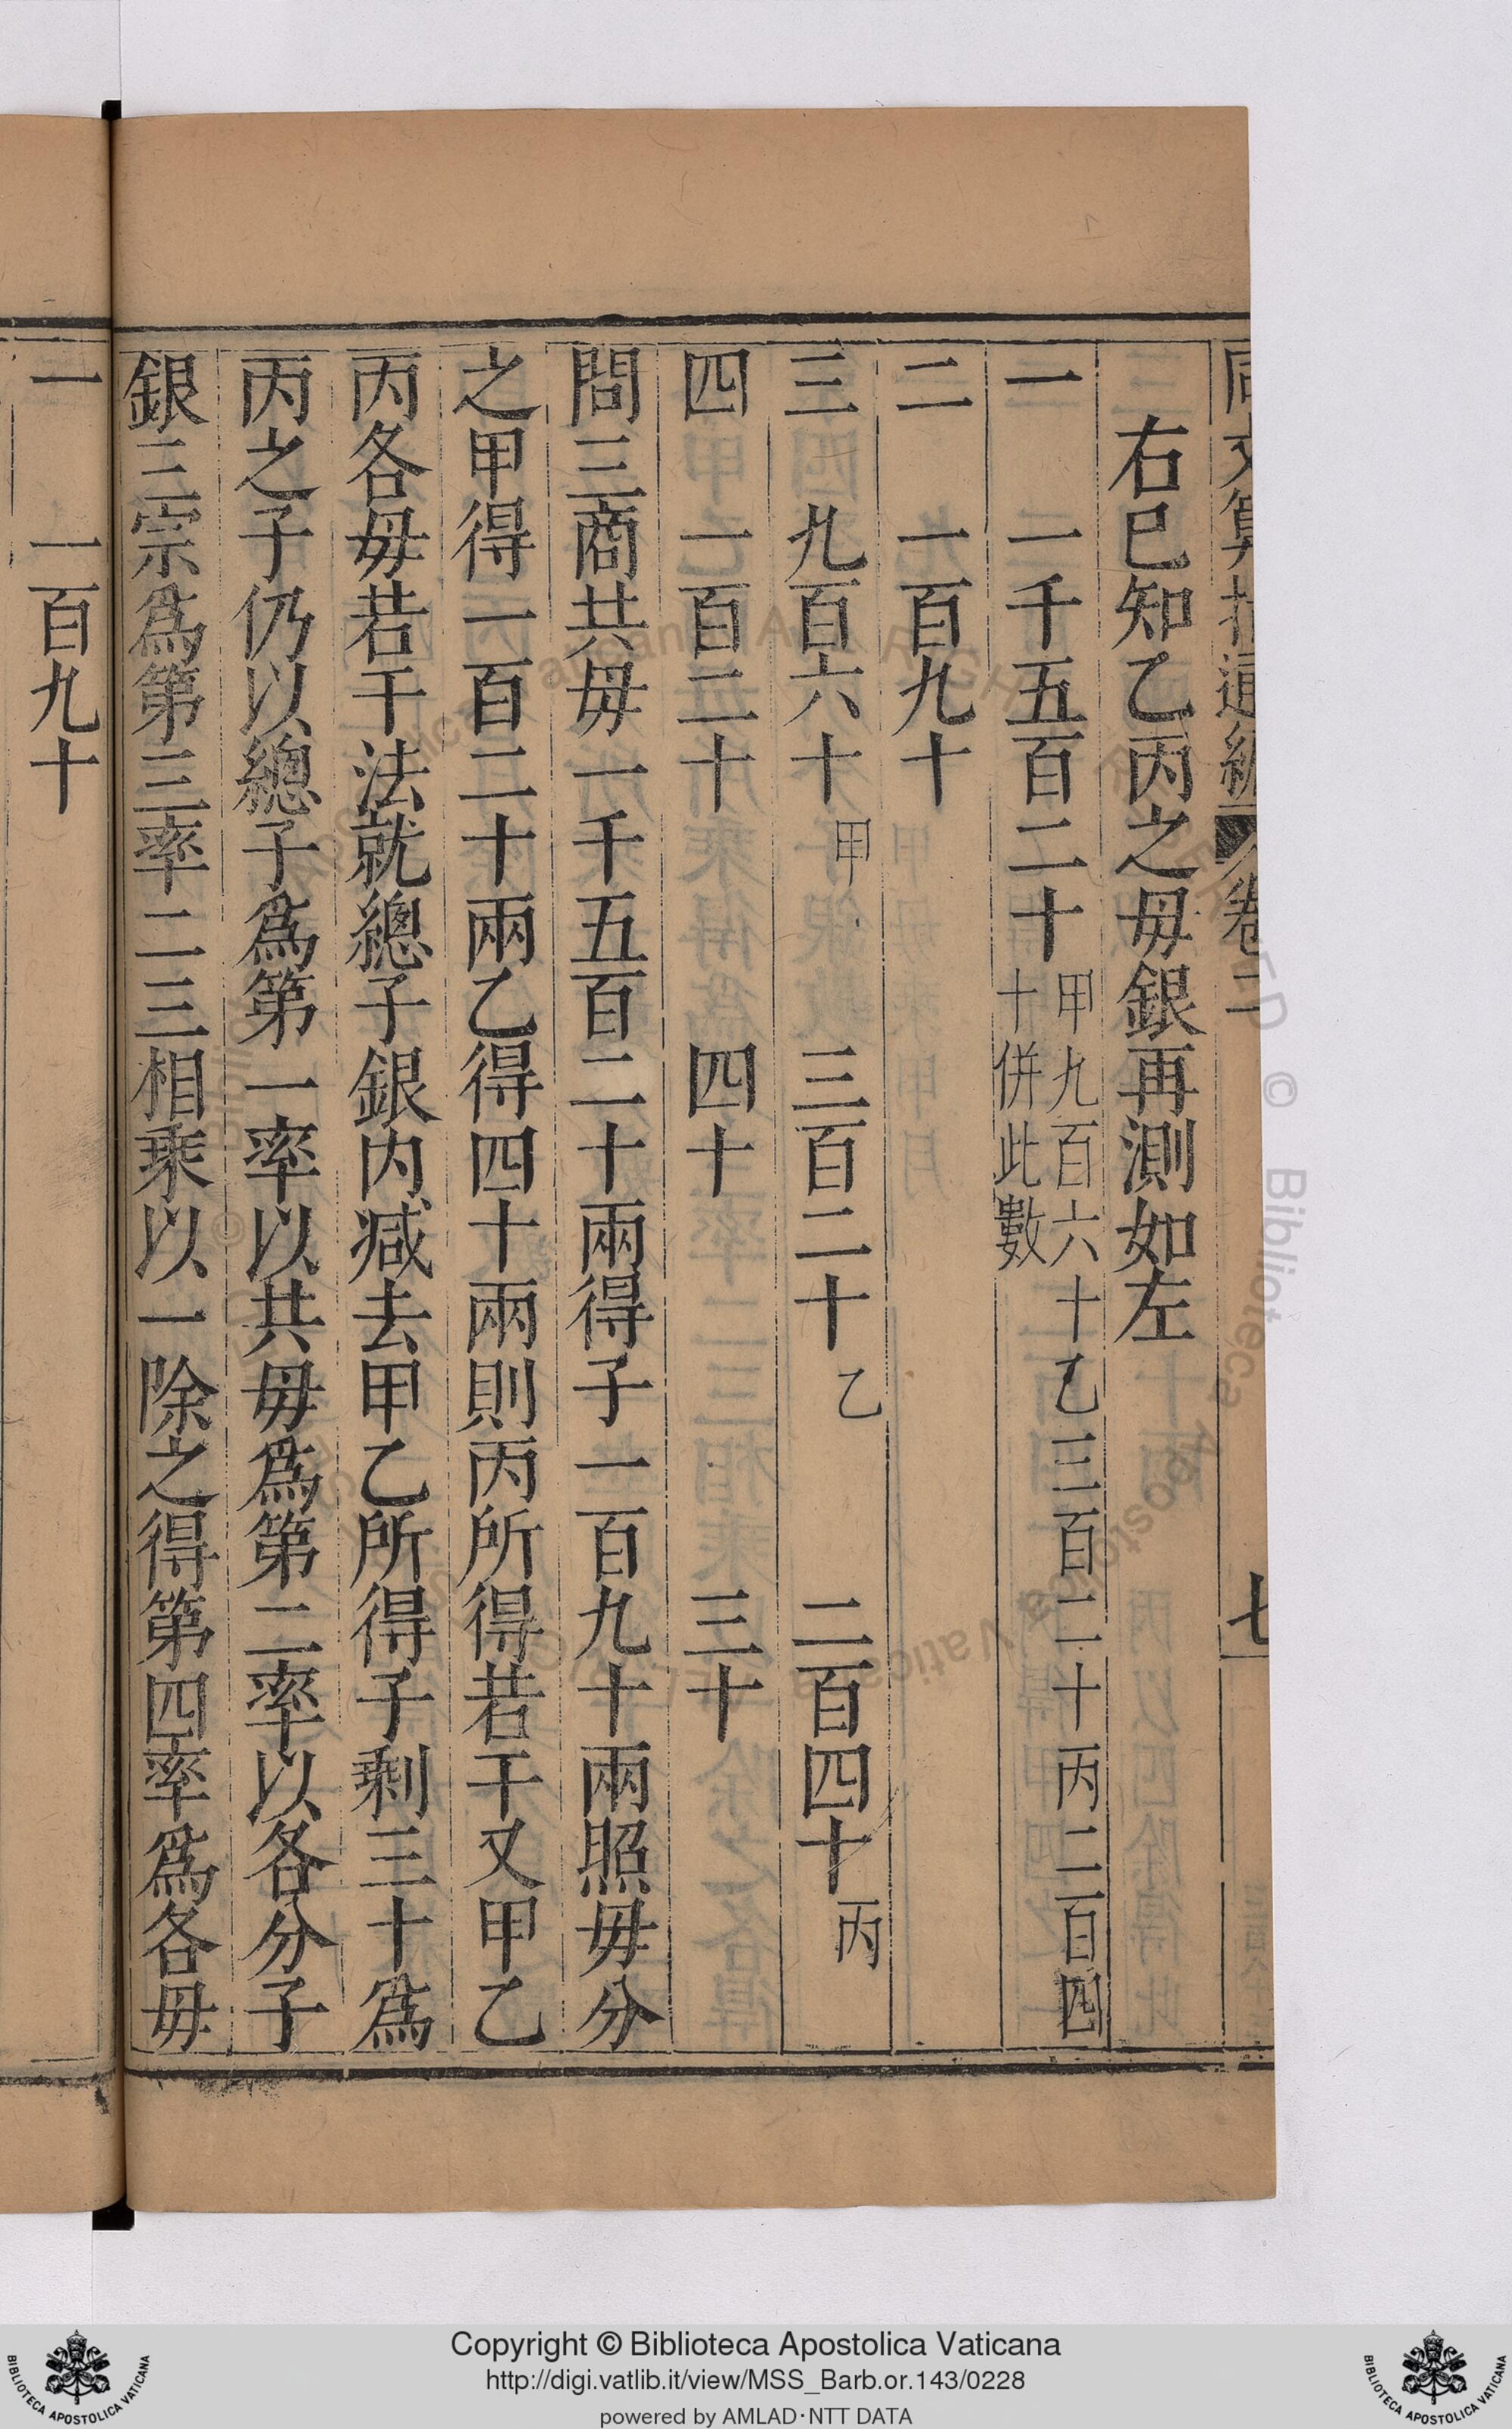 同文算指通編 卷二 七
右巳知乙丙之毋銀再測如左
一 一千五百二十 甲九百六十乙三百二十丙二百四
十併此數
二 一百九十
三 九百六十 甲 三百二十 乙 二百四十 丙
四 一百二十 四十 三十
問三商共毋一千五百二十兩得子一百九十兩照毋分
之甲得一百二十兩乙得四十兩則丙所得若干又甲乙
丙各毋若干法就總子銀内减去甲乙所得子剩三十爲
丙之子仍以總子爲第一率以共毋爲第二率以各分子
銀三宗爲第三率二三相乘以一除之得第四率爲各毋
一 一百九十
Copyright © Biblioteca Apostolica Vaticana
http://digi.vatlib.it/view/MSS_Barb.or.143/0228
powered by AMLAD·NTT DATA
BIBLIOTECA APOSTOLICA VATICANA
BIBLIOTECA APOSTOLICA VATICANA